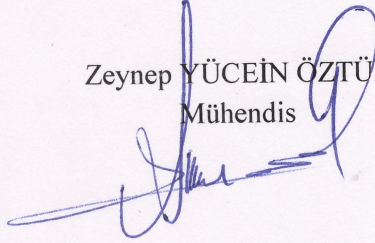 Zeynep YÜCEİN ÖZTÜ
Mühendis